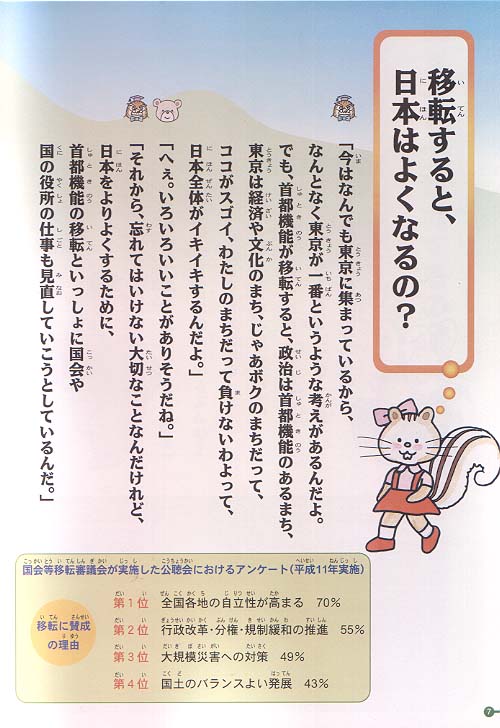 移転すると、
日本はよくなるの？
「今はなんでも東京に集まっているから、
なんとなく東京が一番というような考えがあるんだよ。
でも、首都機能が移転すると、政治は首都機能のあるまち、
東京は経済や文化のまち、じゃあボクのまちだって、
ココがスゴイ、わたしのまちだって負けないわよって、
日本全体がイキイキするんだよ。」
「へぇ。いろいろいいことがありそうだね。」
「それから、忘れてはいけない大切なことなんだけれど、
日本をよりよくするために、
首都機能の移転といっしょに国会や
国の役所の仕事も見直していこうとしているんだ。」
国会等移転審議会が実施した公聴会におけるアンケート（平成11年実施）
移転に賛成
の理由
第1位 全国各地の自立性が高まる 70%
第2位 行政改革・分権・規制緩和の推進 55%
第3位 大規模災害への対策 49%
第4位 国土のバランスよい発展 43%
7